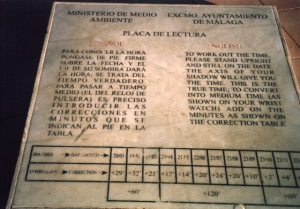 MINISTERIO DE MEDIO AMBIENTE
EXCMO. AYUNTAMIENTO DE MÁLAGA
PLACA DE LECTURA
ESPAÑOL
PARA CONOCER LA HORA
PONGASE DE PIE, FIRME
SOBRE LA FECHA Y EL
EJE DE SU SOMBRA DARA
LA HORA. SE TRATA DEL
TIEMPO VERDADERO
PARA PASAR A TIEMPO
MEDIO (EL DEL RELOJ DE
PULSERA) ES PRECISO
INTRODUCIR LAS
CORRECCIONES EN
MINUTOS QUE SE
INDICAN AL PIE EN LA
TABLA.
INGLISH
TO WORK OUT THE TIME,
PLEASE STAND UPRIGHT
AND STILL ON THE DATE.
THE AXIS OF YOUR
SHADOW WILL GIVE YOU
THE TIME. THIS IS THE
TRUE TIME, TO CONVERT
INTO MEDIUM TIME (AS
SHOWN ON YOUR WRIST
WATCH) ADD ON THE
MINUTES AS SHOWN ON
THE CORRECTION TABLE